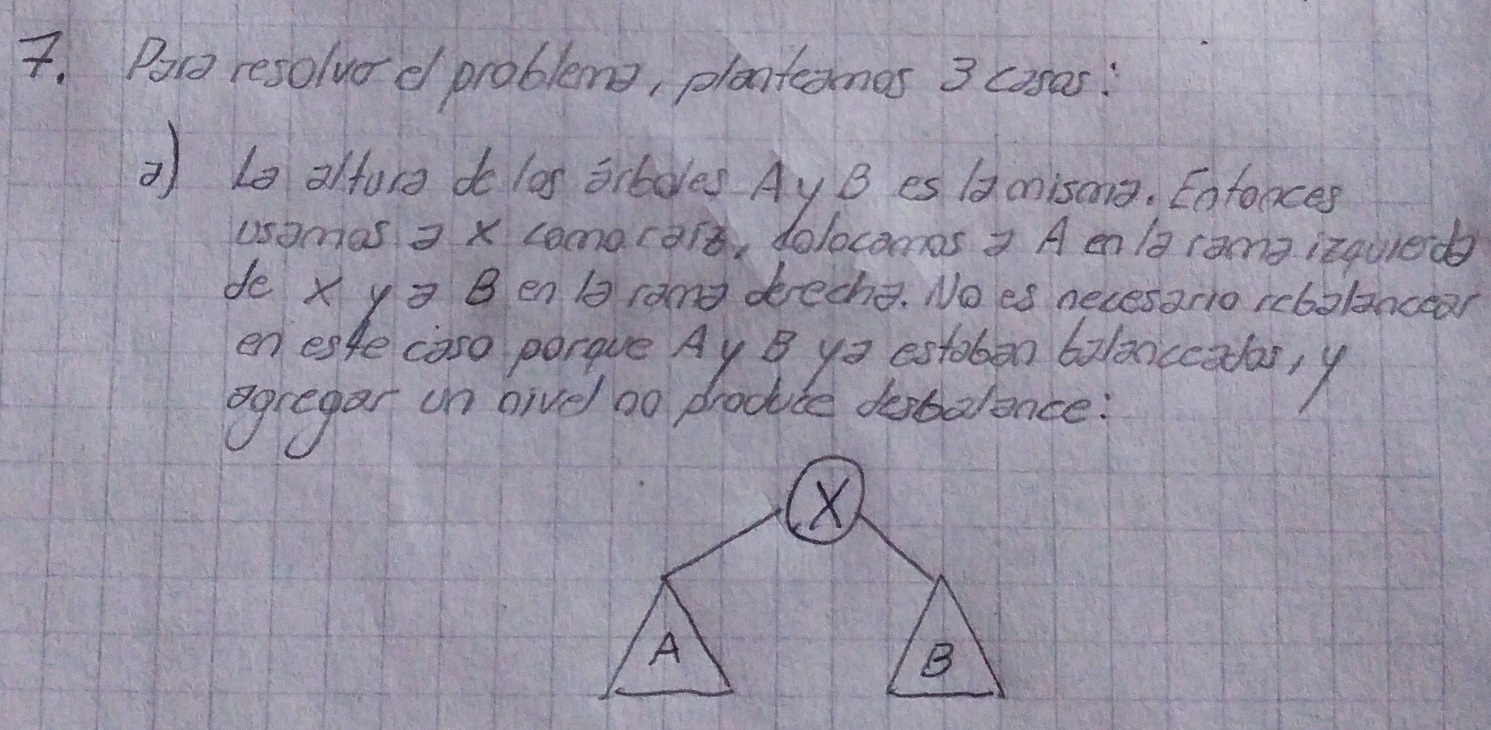 7. Para resolver el problema, planteamos 3 casos:
a) La altura de los árboles A y B es la misma. Entonces
usamos a X como raíz, colocamos a A en la rama izquierda
de X y a B en la rama derecha. No es necesario rebalancear
en este caso porque A y B ya estaban balanceados, y
agregar un nivel no produce desbalance:
X
A B